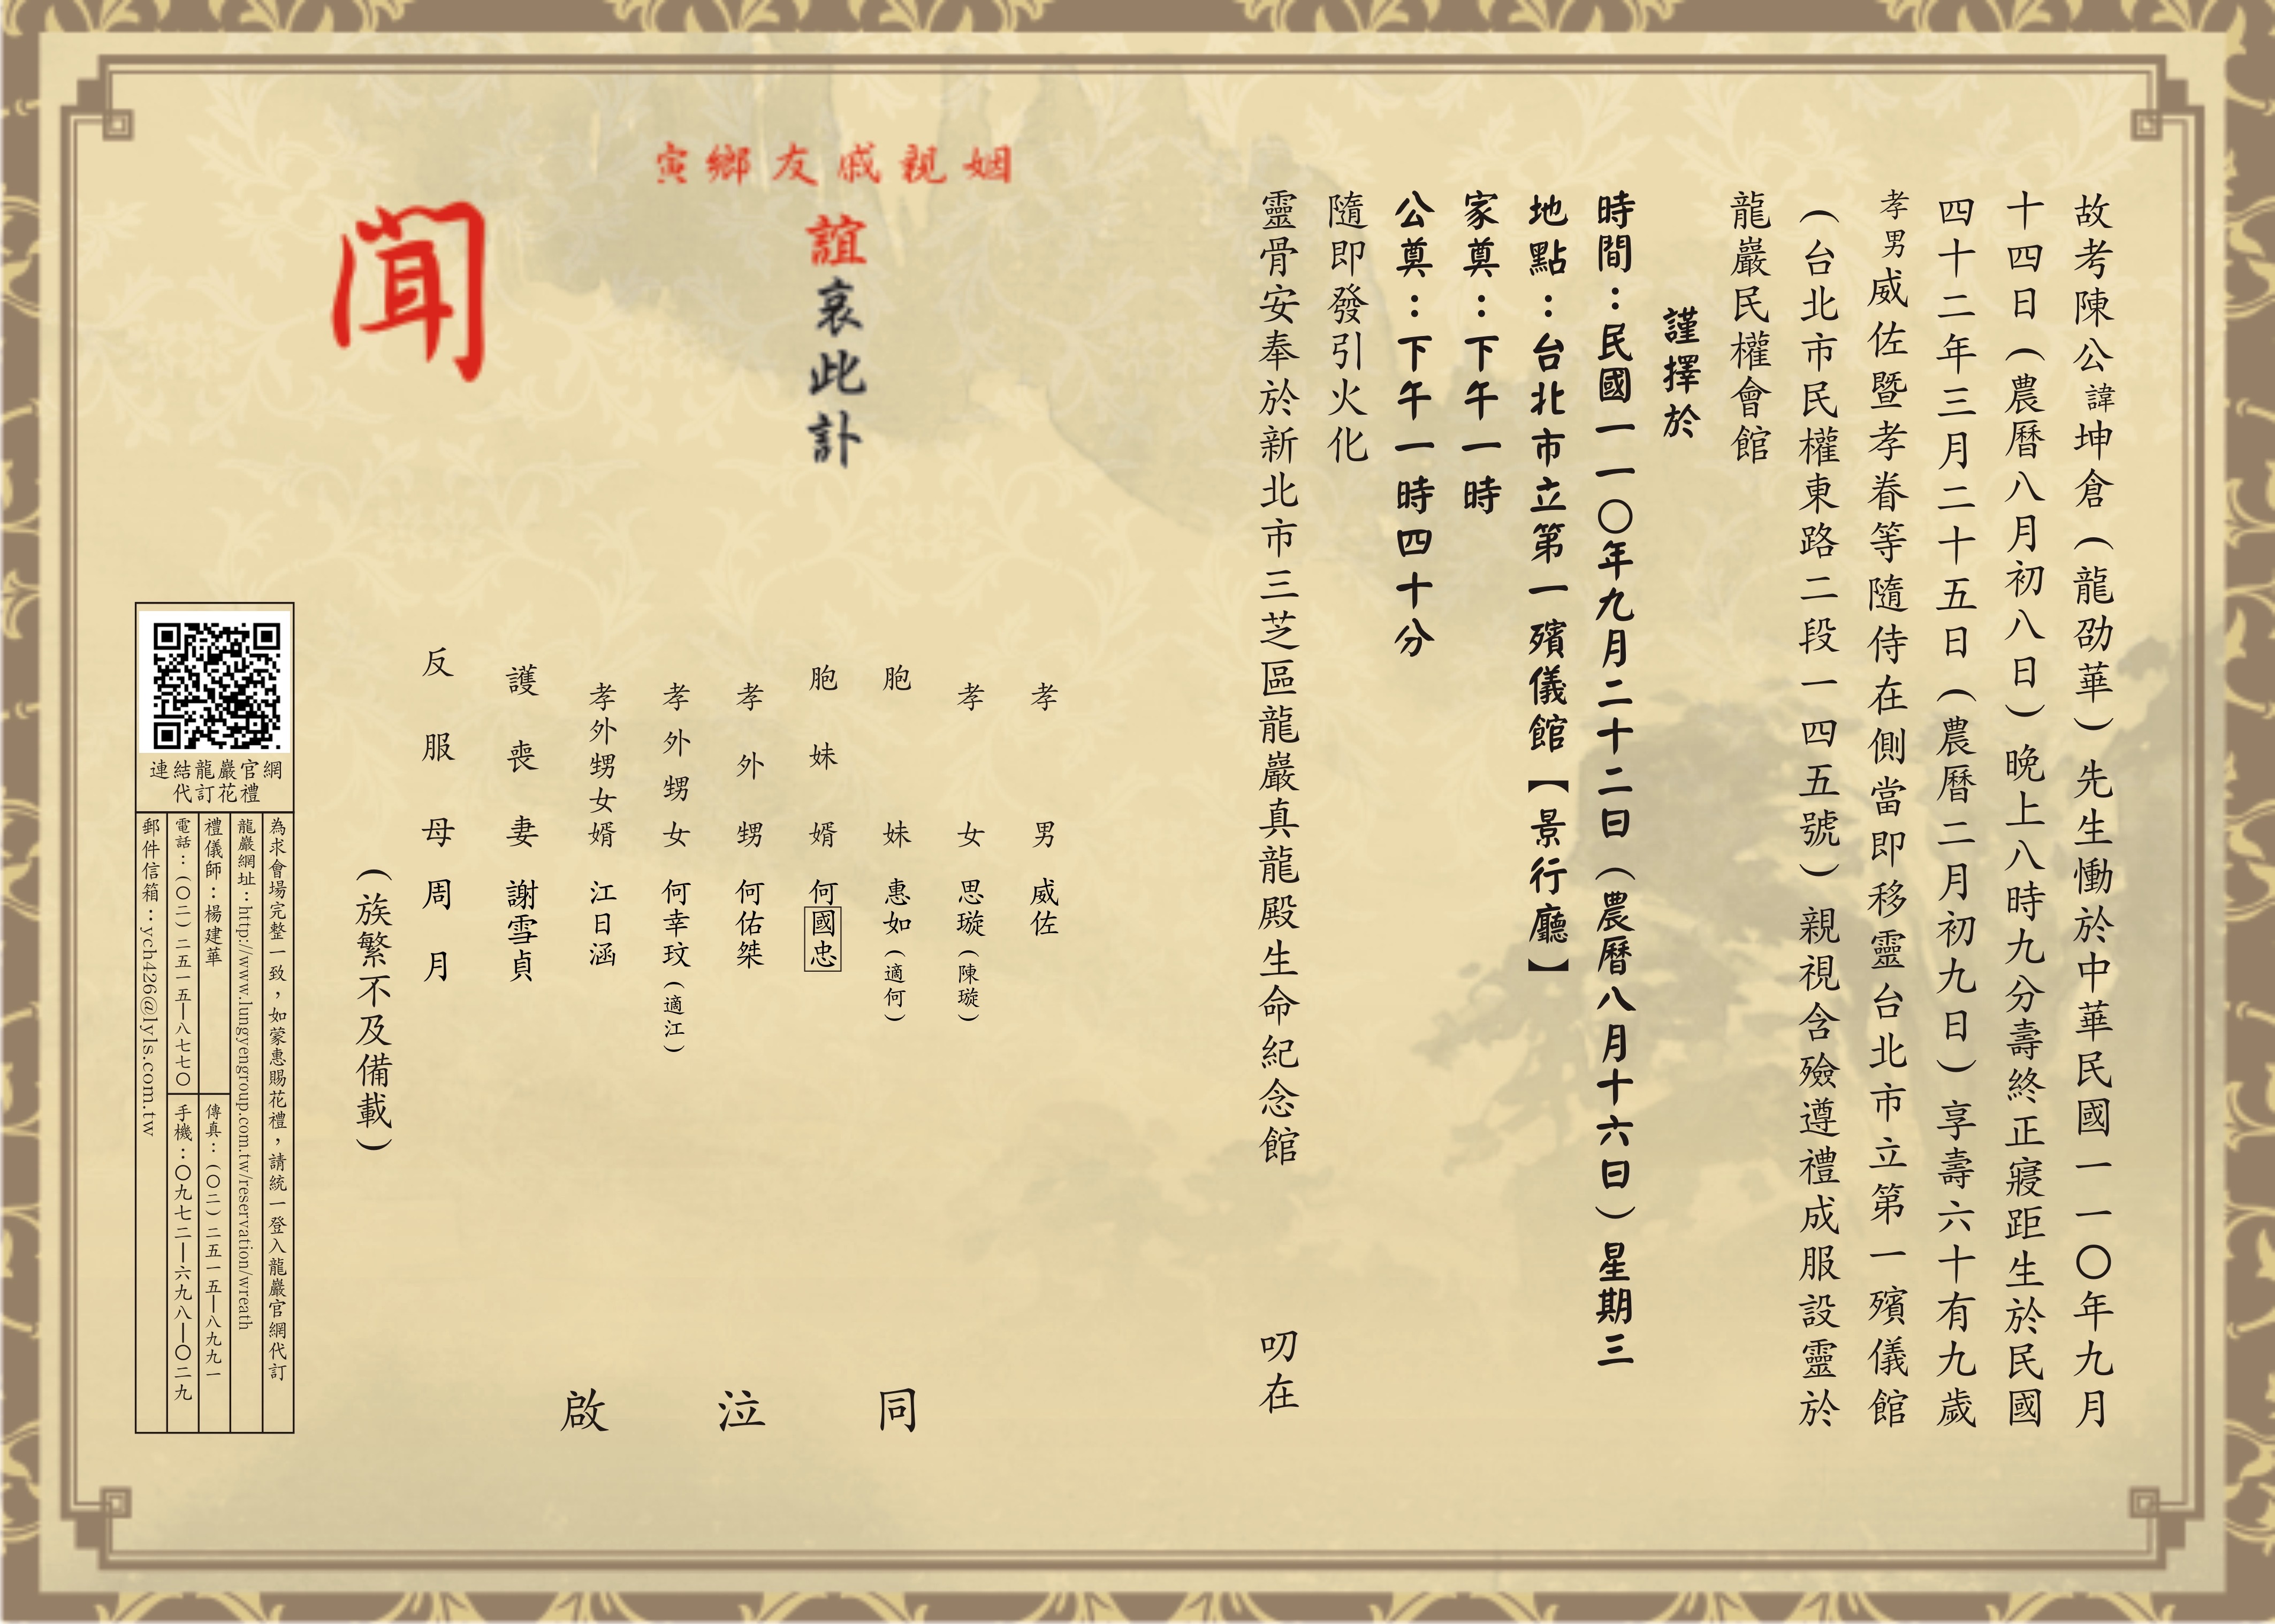 故考陳公諱坤倉（龍劭華）先生慟於中華民國一一〇年九月
十四日（農曆八月初八日）晚上八時九分壽終正寢距生於民國
四十二年三月二十五日（農曆二月初九日）享壽六十有九歲
孝男威佐暨孝眷等隨侍在側當即移靈台北市立第一殯儀館
（台北市民權東路二段一四五號）親視含殮遵禮成服設靈於
龍巖民權會館
謹擇於
時間：民國一一〇年九月二十二日（農曆八月十六日）星期三
地點：台北市立第一殯儀館【景行廳】
家奠：下午一時
公奠：下午一時四十分
隨即發引火化
靈骨安奉於新北市三芝區龍巖真龍殿生命紀念館 叨在
姻親戚友鄉寅
誼哀此訃
聞
孝男 威佐
孝女 思璇（陳璇）
胞妹 惠如（適何）
胞妹婿 何國忠
孝外甥 何佑桀
孝外甥女 何幸玟（適江）
孝外甥女婿 江日涵
護喪妻 謝雪貞
反服母 周月
同泣啟
（族繁不及備載）
連結龍巖官網
代訂花禮
為求會場完整一致，如蒙惠賜花禮，請統一登入龍巖官網代訂
龍巖網址：http://www.lungyengroup.com.tw/reservation/wreath
禮儀師：楊建華
傳真：（〇二）二五一五－八九九一
電話：（〇二）二五一五－八七七〇
手機：〇九七二－六九八－〇二九
郵件信箱：ych426@lyls.com.tw